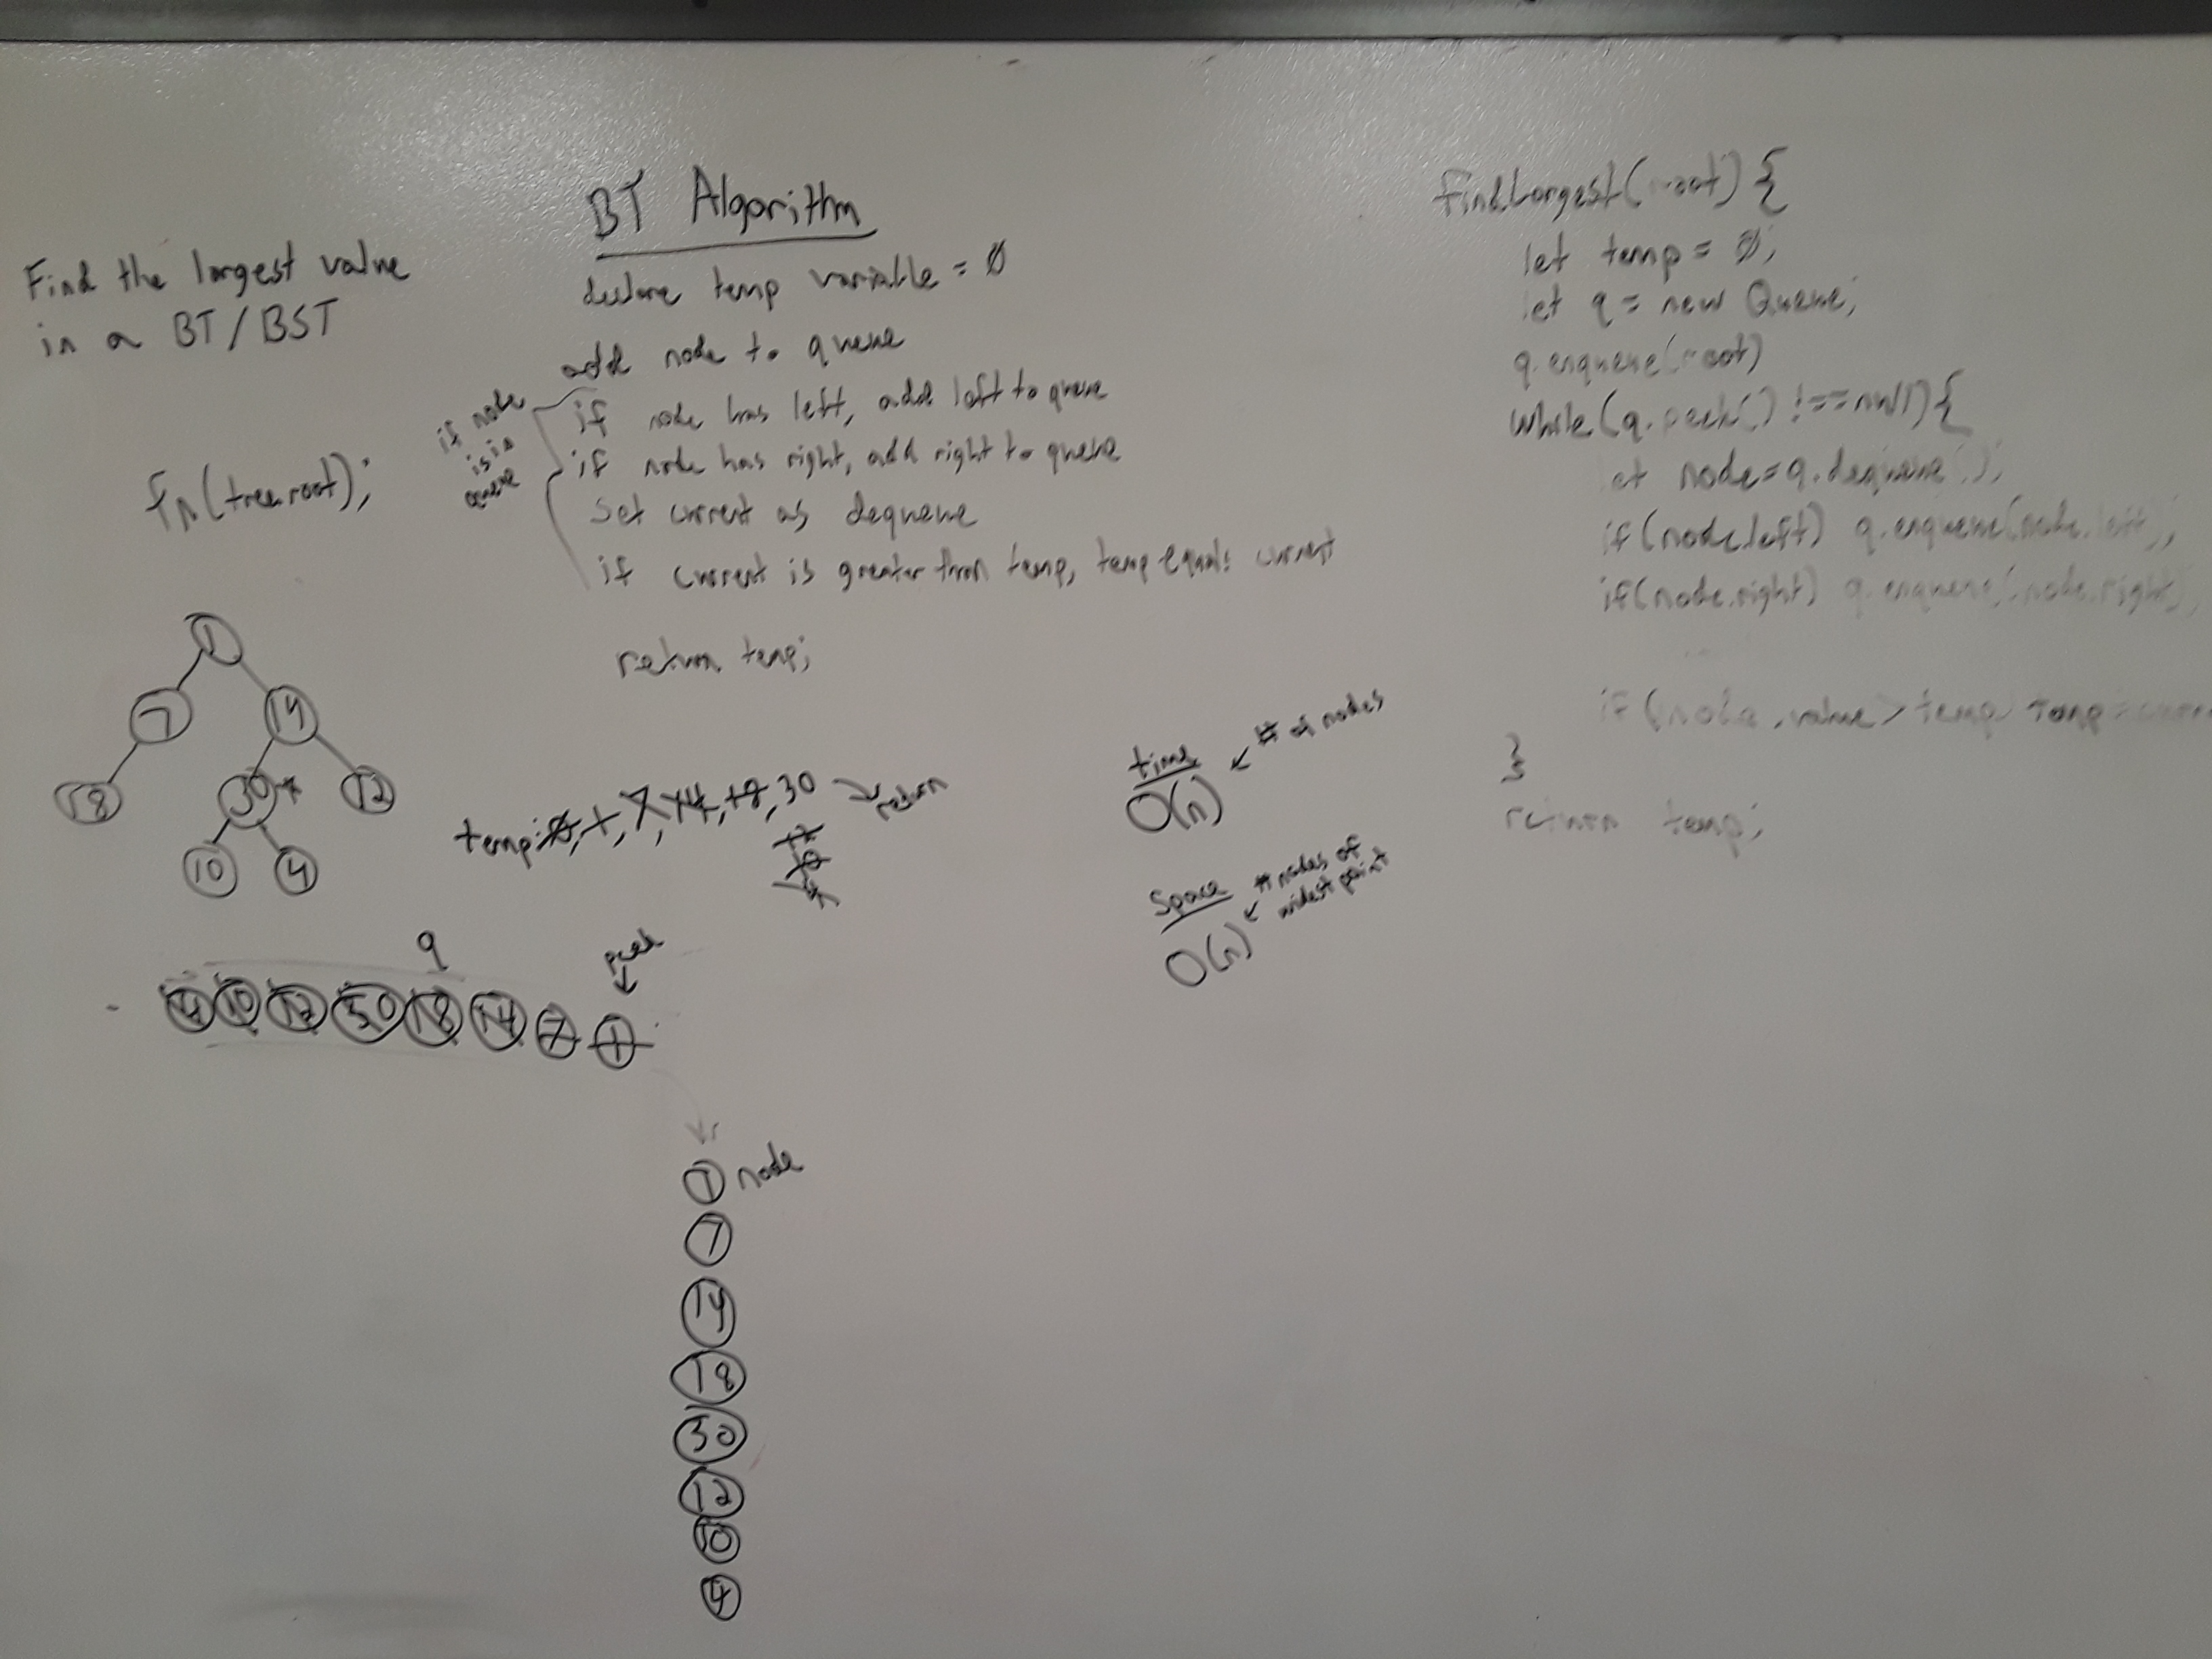 Find the largest value
in a BT/BST
fn(tree.root);
BT Algorithm
declare temp variable = 0
add node to queue
if node
is in
queue
if node has left, add left to queue
if node has right, add right to queue
set current as dequeue
if current is greater than temp, temp equals current
return temp;
1
7 14
18 30* 12
10 4
temp: 0, 1, 7, 14, 18, 30 return
12
10
4
q
peek
4 10 12 30 18 14 7 1
1 node
7
14
18
30
12
10
4
time
O(n) # of nodes
Space
O(n) # nodes of
widest point
findLargest(root) {
let temp = 0;
let q = new Queue;
q.enqueue(root)
while(q.peek() !== null) {
let node = q.dequeue();
if(node.left) q.enqueue(node.left);
if(node.right) q.enqueue(node.right);
if(node.value > temp temp =
}
return temp;